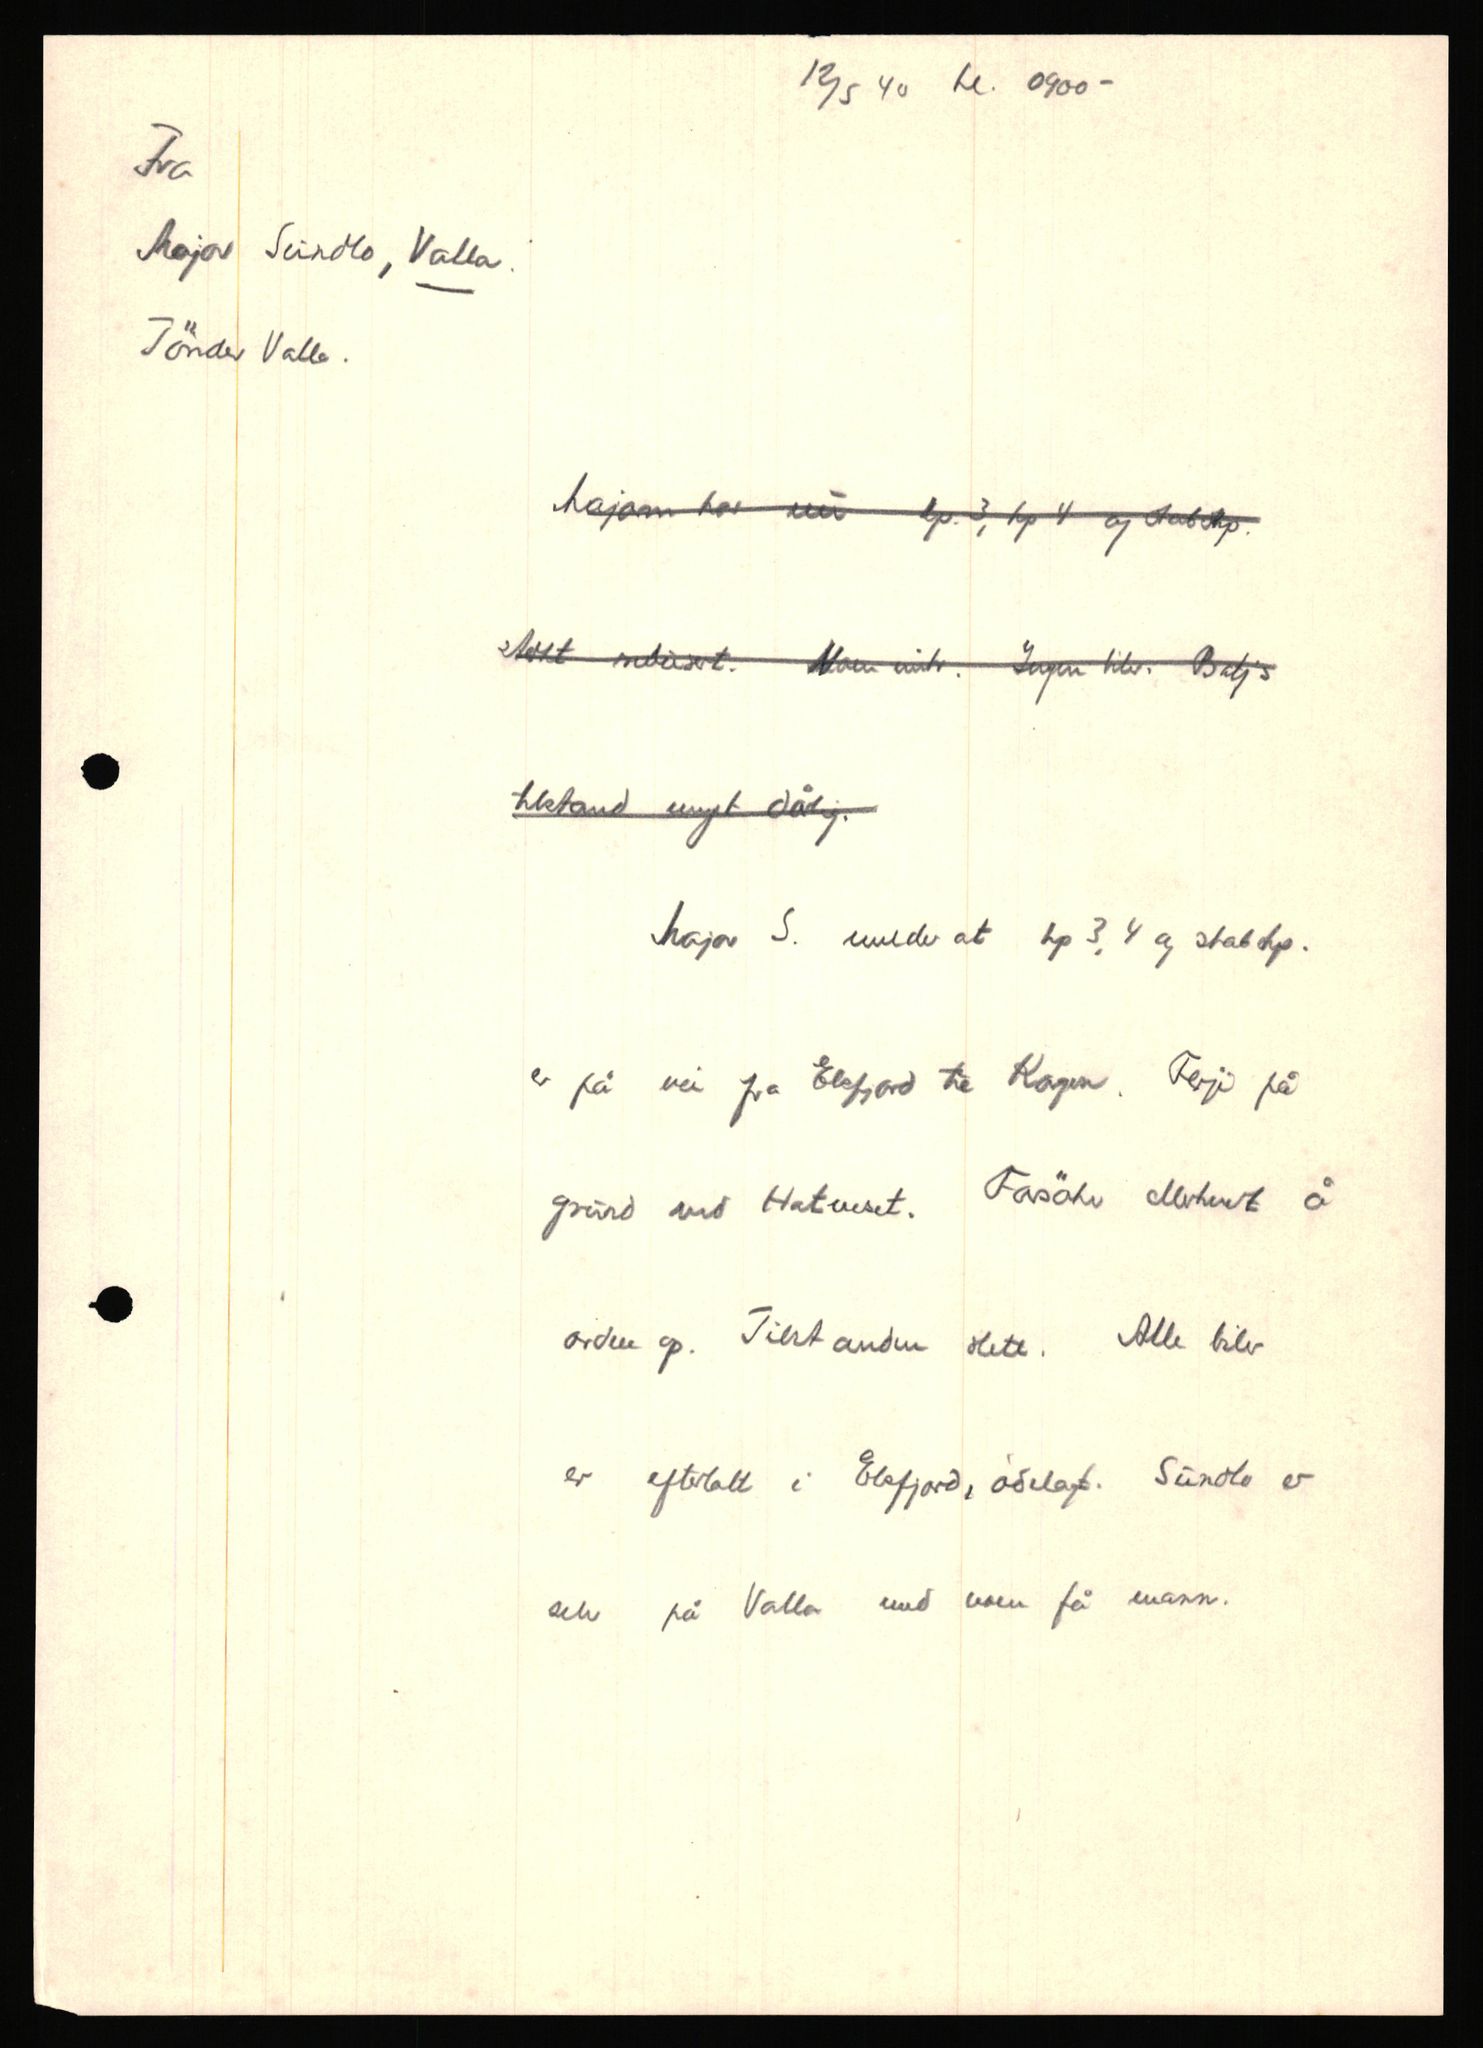 12/5 40 kl. 0900-
Fra
Major Sundlo, Valla.
Tönder Valla.
Majoren har nu kp. 3, kp 4 og stabskp.
sterkt redusert. Noen mitr. Ingen biler. Batj's
tilstand meget dårlig.
Major S. melder at kp 3, 4 og stabskp.
er på vei fra Elsfjord til Korgen. Ferje på
grund ved Hatneset. Forsöker allerhvert å
ordne op. Tilstanden slett. Alle biler
er efterlatt i Elsfjord, ödelagt. Sundlo er
selv på Valla med noen få mann.